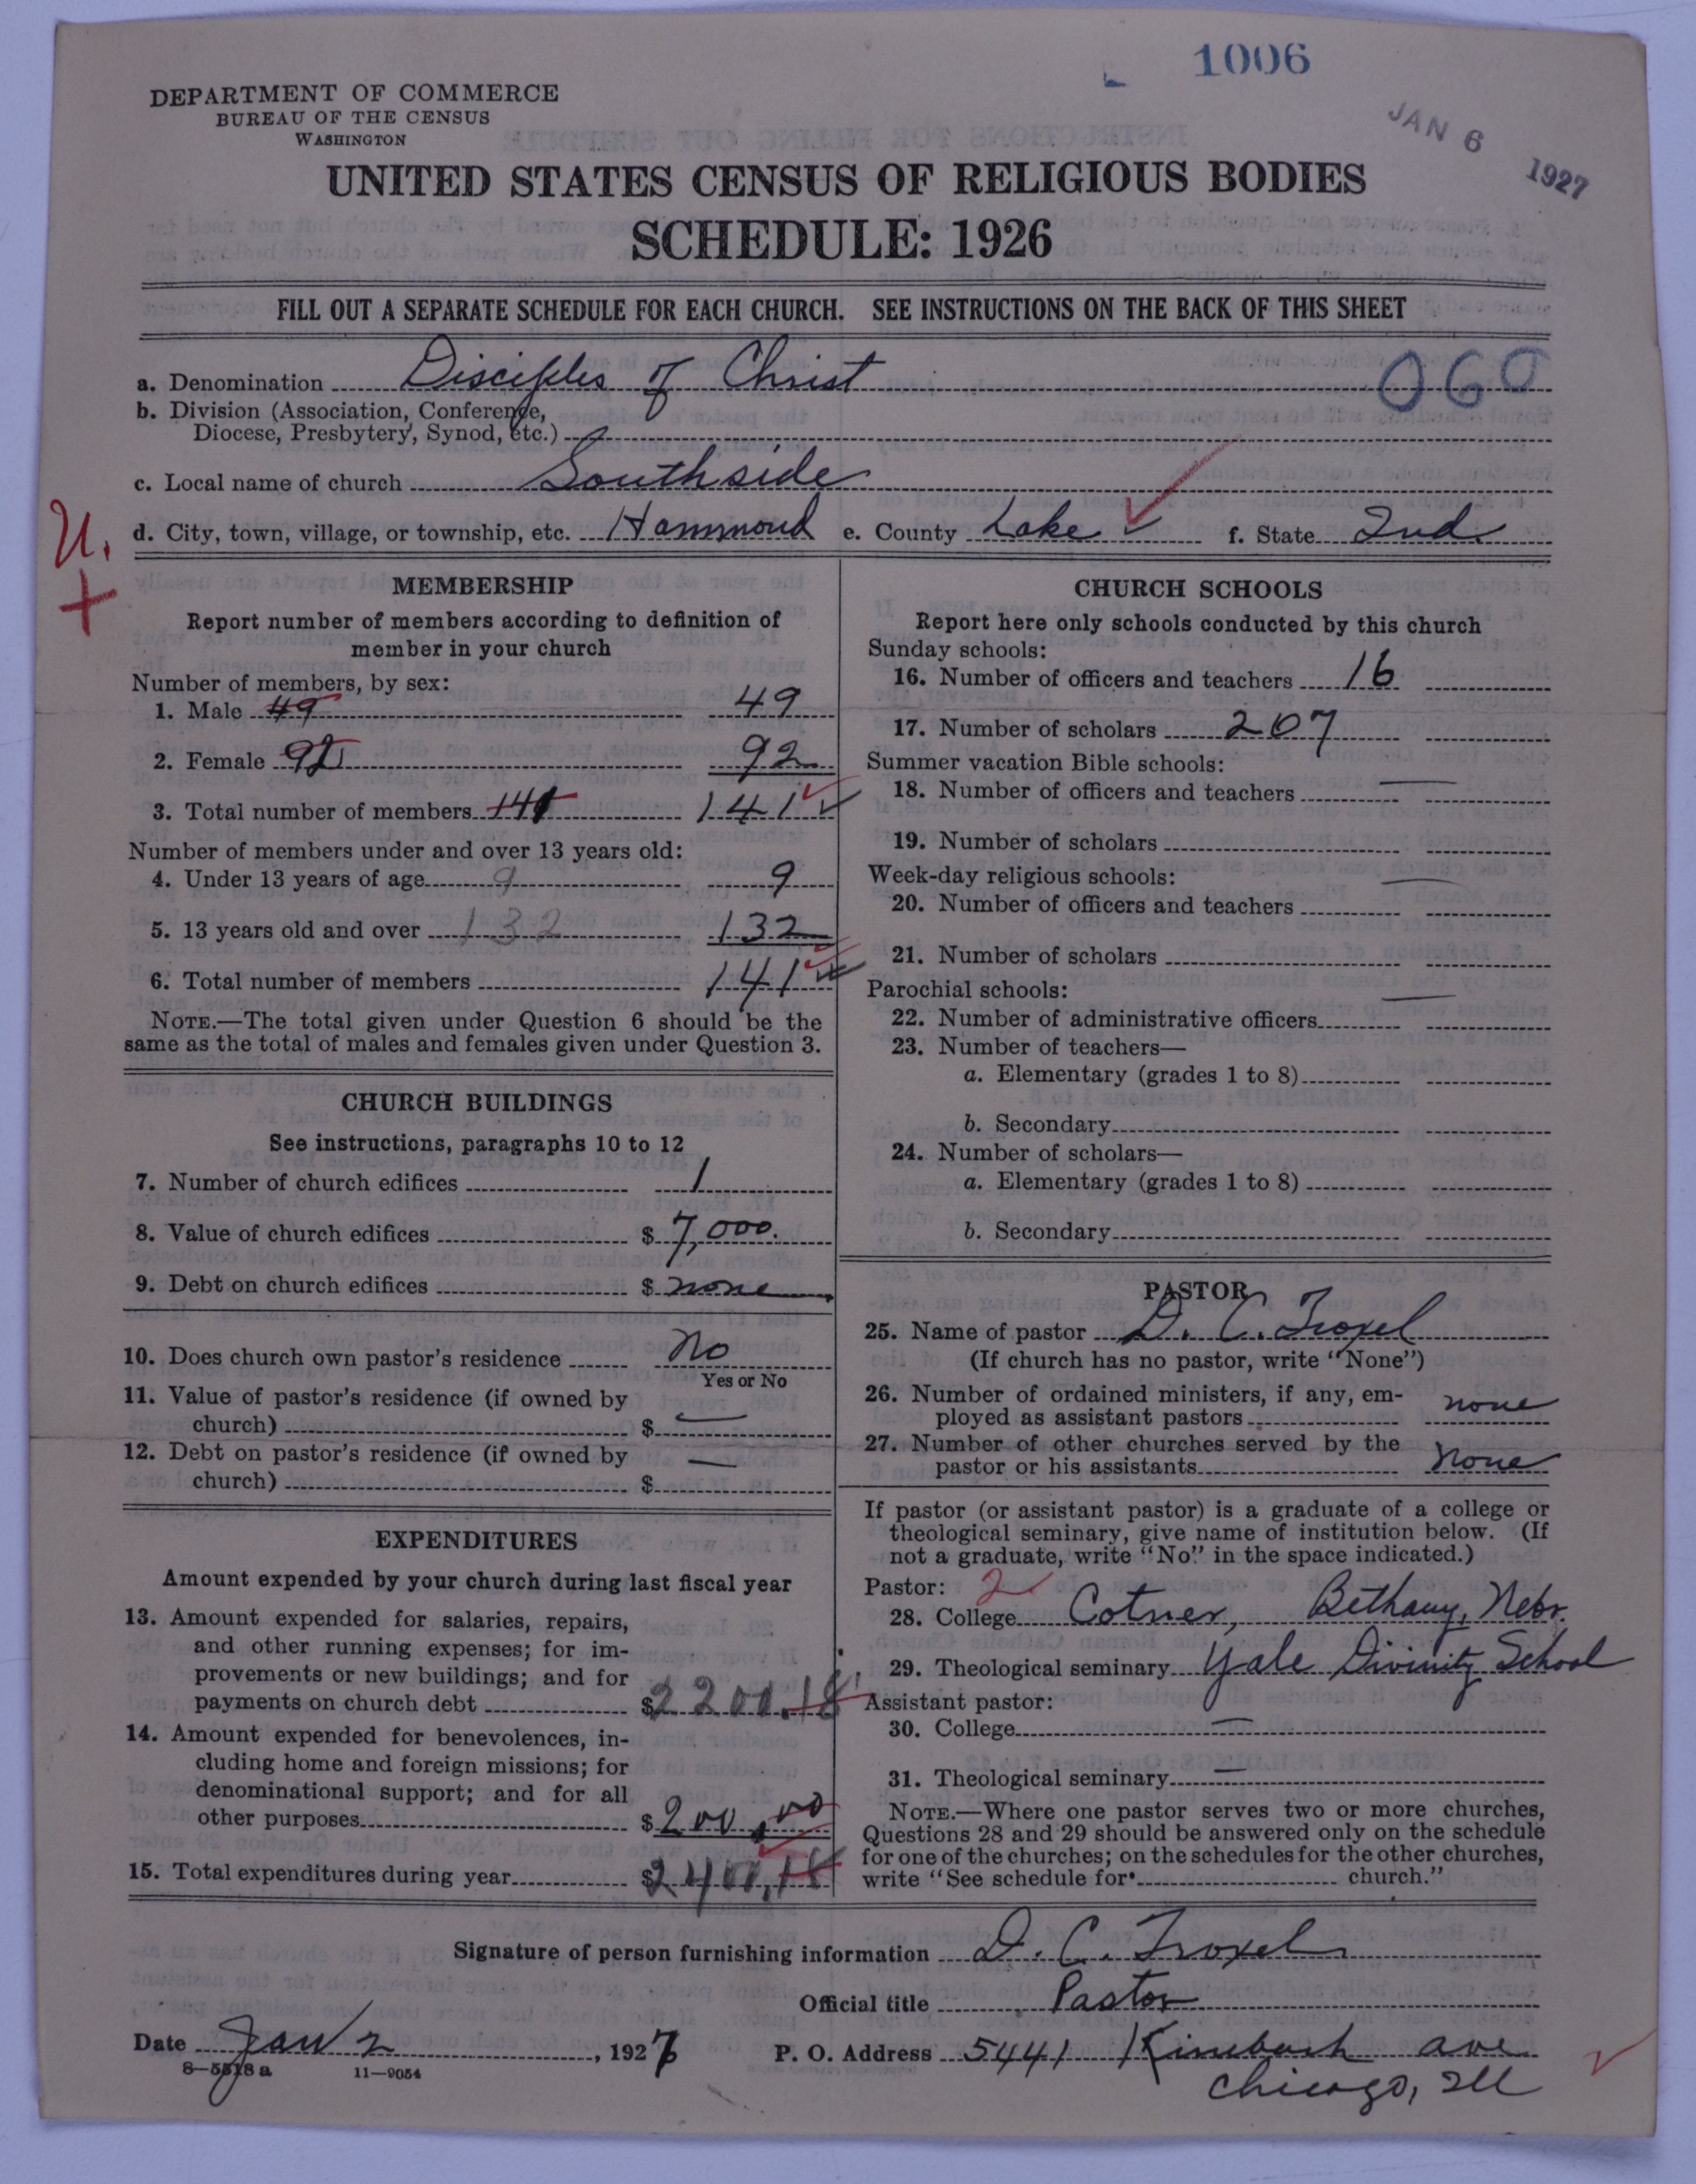 1006
JAN 6 1927
DEPARTMENT OF COMMERCE
BUREAU OF THE CENSUS
WASHINGTON
UNITED STATES CENSUS OF RELIGIOUS BODIES
SCHEDULE: 1926
FILL OUT A SEPARATE SCHEDULE FOR EACH CHURCH. SEE INSTRUCTIONS ON THE BACK OF THIS SHEET
a. Denomination Disciples of Christ 060
b. Division (Association, Conference,
Diocese, Presbytery, Synod, etc.)
c. Local name of church Southside
U. d. City, town, village, or township, etc. Hammond e. County Lake f. State Ind.
+
MEMBERSHIP
Report number of members according to definition of
member in your church
Number of members, by sex:
1. Male 49 49
2. Female 92 92
3. Total number of members 141 141
Number of members under and over 13 years old:
4. Under 13 years of age 9 9
5. 13 years old and over 132 132
6. Total number of members 141
NOTE.—The total given under Question 6 should be the
same as the total of males and females given under Question 3.
CHURCH BUILDINGS
See instructions, paragraphs 10 to 12
7. Number of church edifices 1
8. Value of church edifices $ 7,000.
9. Debt on church edifices $ none
10. Does church own pastor's residence No
Yes or No
11. Value of pastor's residence (if owned by
church) $ —
12. Debt on pastor's residence (if owned by
church) $ —
EXPENDITURES
Amount expended by your church during last fiscal year
13. Amount expended for salaries, repairs,
and other running expenses; for im-
provements or new buildings; and for
payments on church debt $ 2200.18
14. Amount expended for benevolences, in-
cluding home and foreign missions; for
denominational support; and for all
other purposes $ 200.00
15. Total expenditures during year $ 2400.18
CHURCH SCHOOLS
Report here only schools conducted by this church
Sunday schools:
16. Number of officers and teachers 16
17. Number of scholars 207
Summer vacation Bible schools:
18. Number of officers and teachers —
19. Number of scholars
Week-day religious schools: —
20. Number of officers and teachers
21. Number of scholars
Parochial schools: —
22. Number of administrative officers
23. Number of teachers—
a. Elementary (grades 1 to 8)
b. Secondary
24. Number of scholars—
a. Elementary (grades 1 to 8)
b. Secondary
PASTOR
25. Name of pastor D. C. Troxel
(If church has no pastor, write "None")
26. Number of ordained ministers, if any, em-
ployed as assistant pastors none
27. Number of other churches served by the
pastor or his assistants none
If pastor (or assistant pastor) is a graduate of a college or
theological seminary, give name of institution below. (If
not a graduate, write "No" in the space indicated.)
Pastor: 2
28. College Cotner, Bethany, Nebr.
29. Theological seminary Yale Divinity School
Assistant pastor:
30. College —
31. Theological seminary —
NOTE.—Where one pastor serves two or more churches,
Questions 28 and 29 should be answered only on the schedule
for one of the churches; on the schedules for the other churches,
write "See schedule for church."
Signature of person furnishing information D. C. Troxel
Official title Pastor
Date Jan 2, 1927 P. O. Address 5441 Kimbark ave
8—5518 a 11—9054 Chicago, Ill